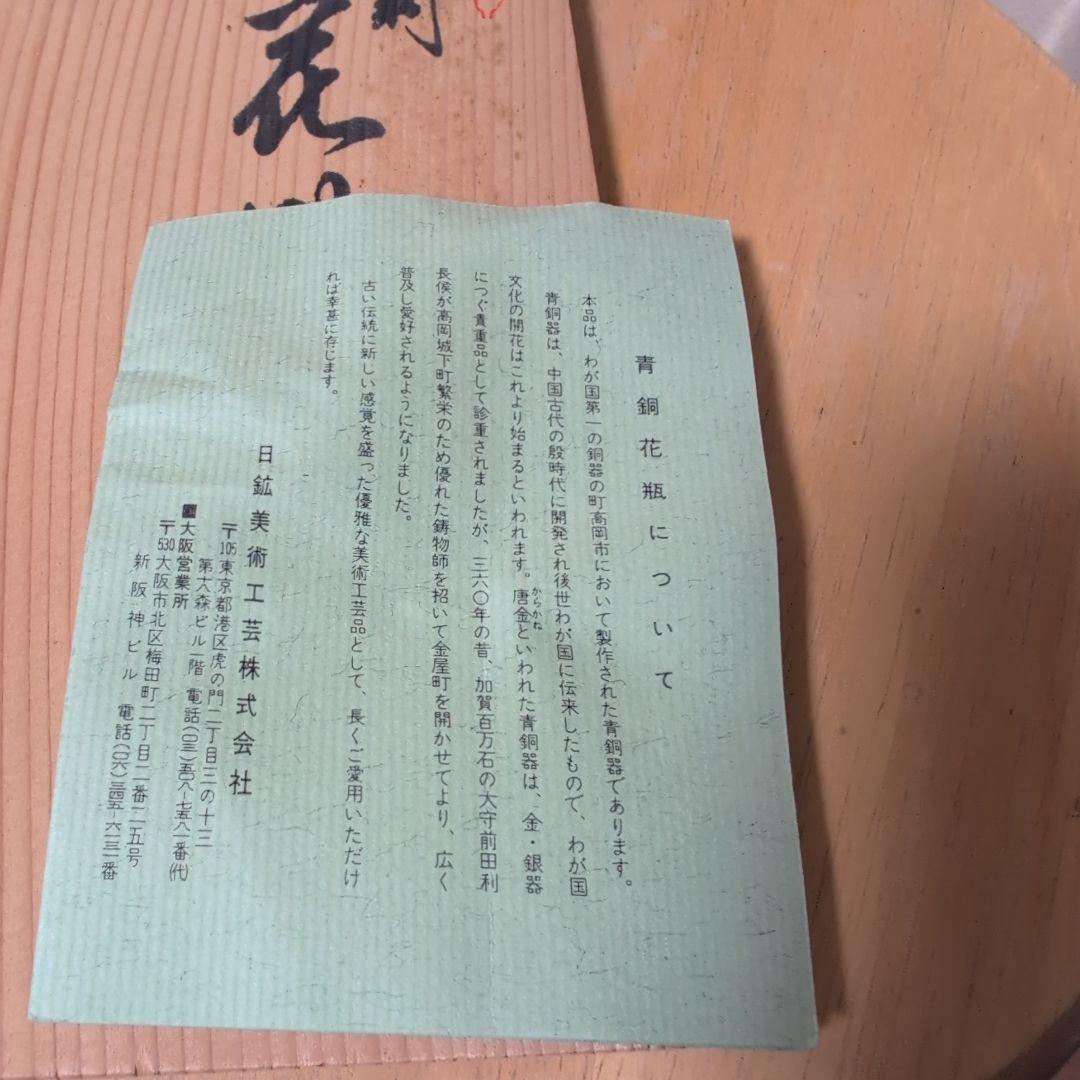 花
青銅花瓶について
本品は、わが国第一の銅器の町高岡市において製作された青銅器であります。
青銅器は、中国古代の殷時代に開発され後世わが国に伝来したもので、わが国
文化の開花はこれより始まるといわれます。唐金といわれた青銅器は、金・銀器
からかね
につぐ貴重品として診重されましたが、三六〇年の昔、加賀百万石の大守前田利
長侯が高岡城下町繁栄のため優れた鋳物師を招いて金屋町を開かせてより、広く
普及し愛好されるようになりました。
古い伝統に新しい感覚を盛った優雅な美術工芸品として、長くご愛用いただけ
れば幸甚に存じます。
日鉱美術工芸株式会社
〒105東京都港区虎の門二丁目三の十三
第大森ビル一階 電話(〇三)五〇八―七五八一番(代)
■大阪営業所
〒530大阪市北区梅田町二丁目二番二五号
新阪神ビル 電話(〇六)三四五―六一三一番